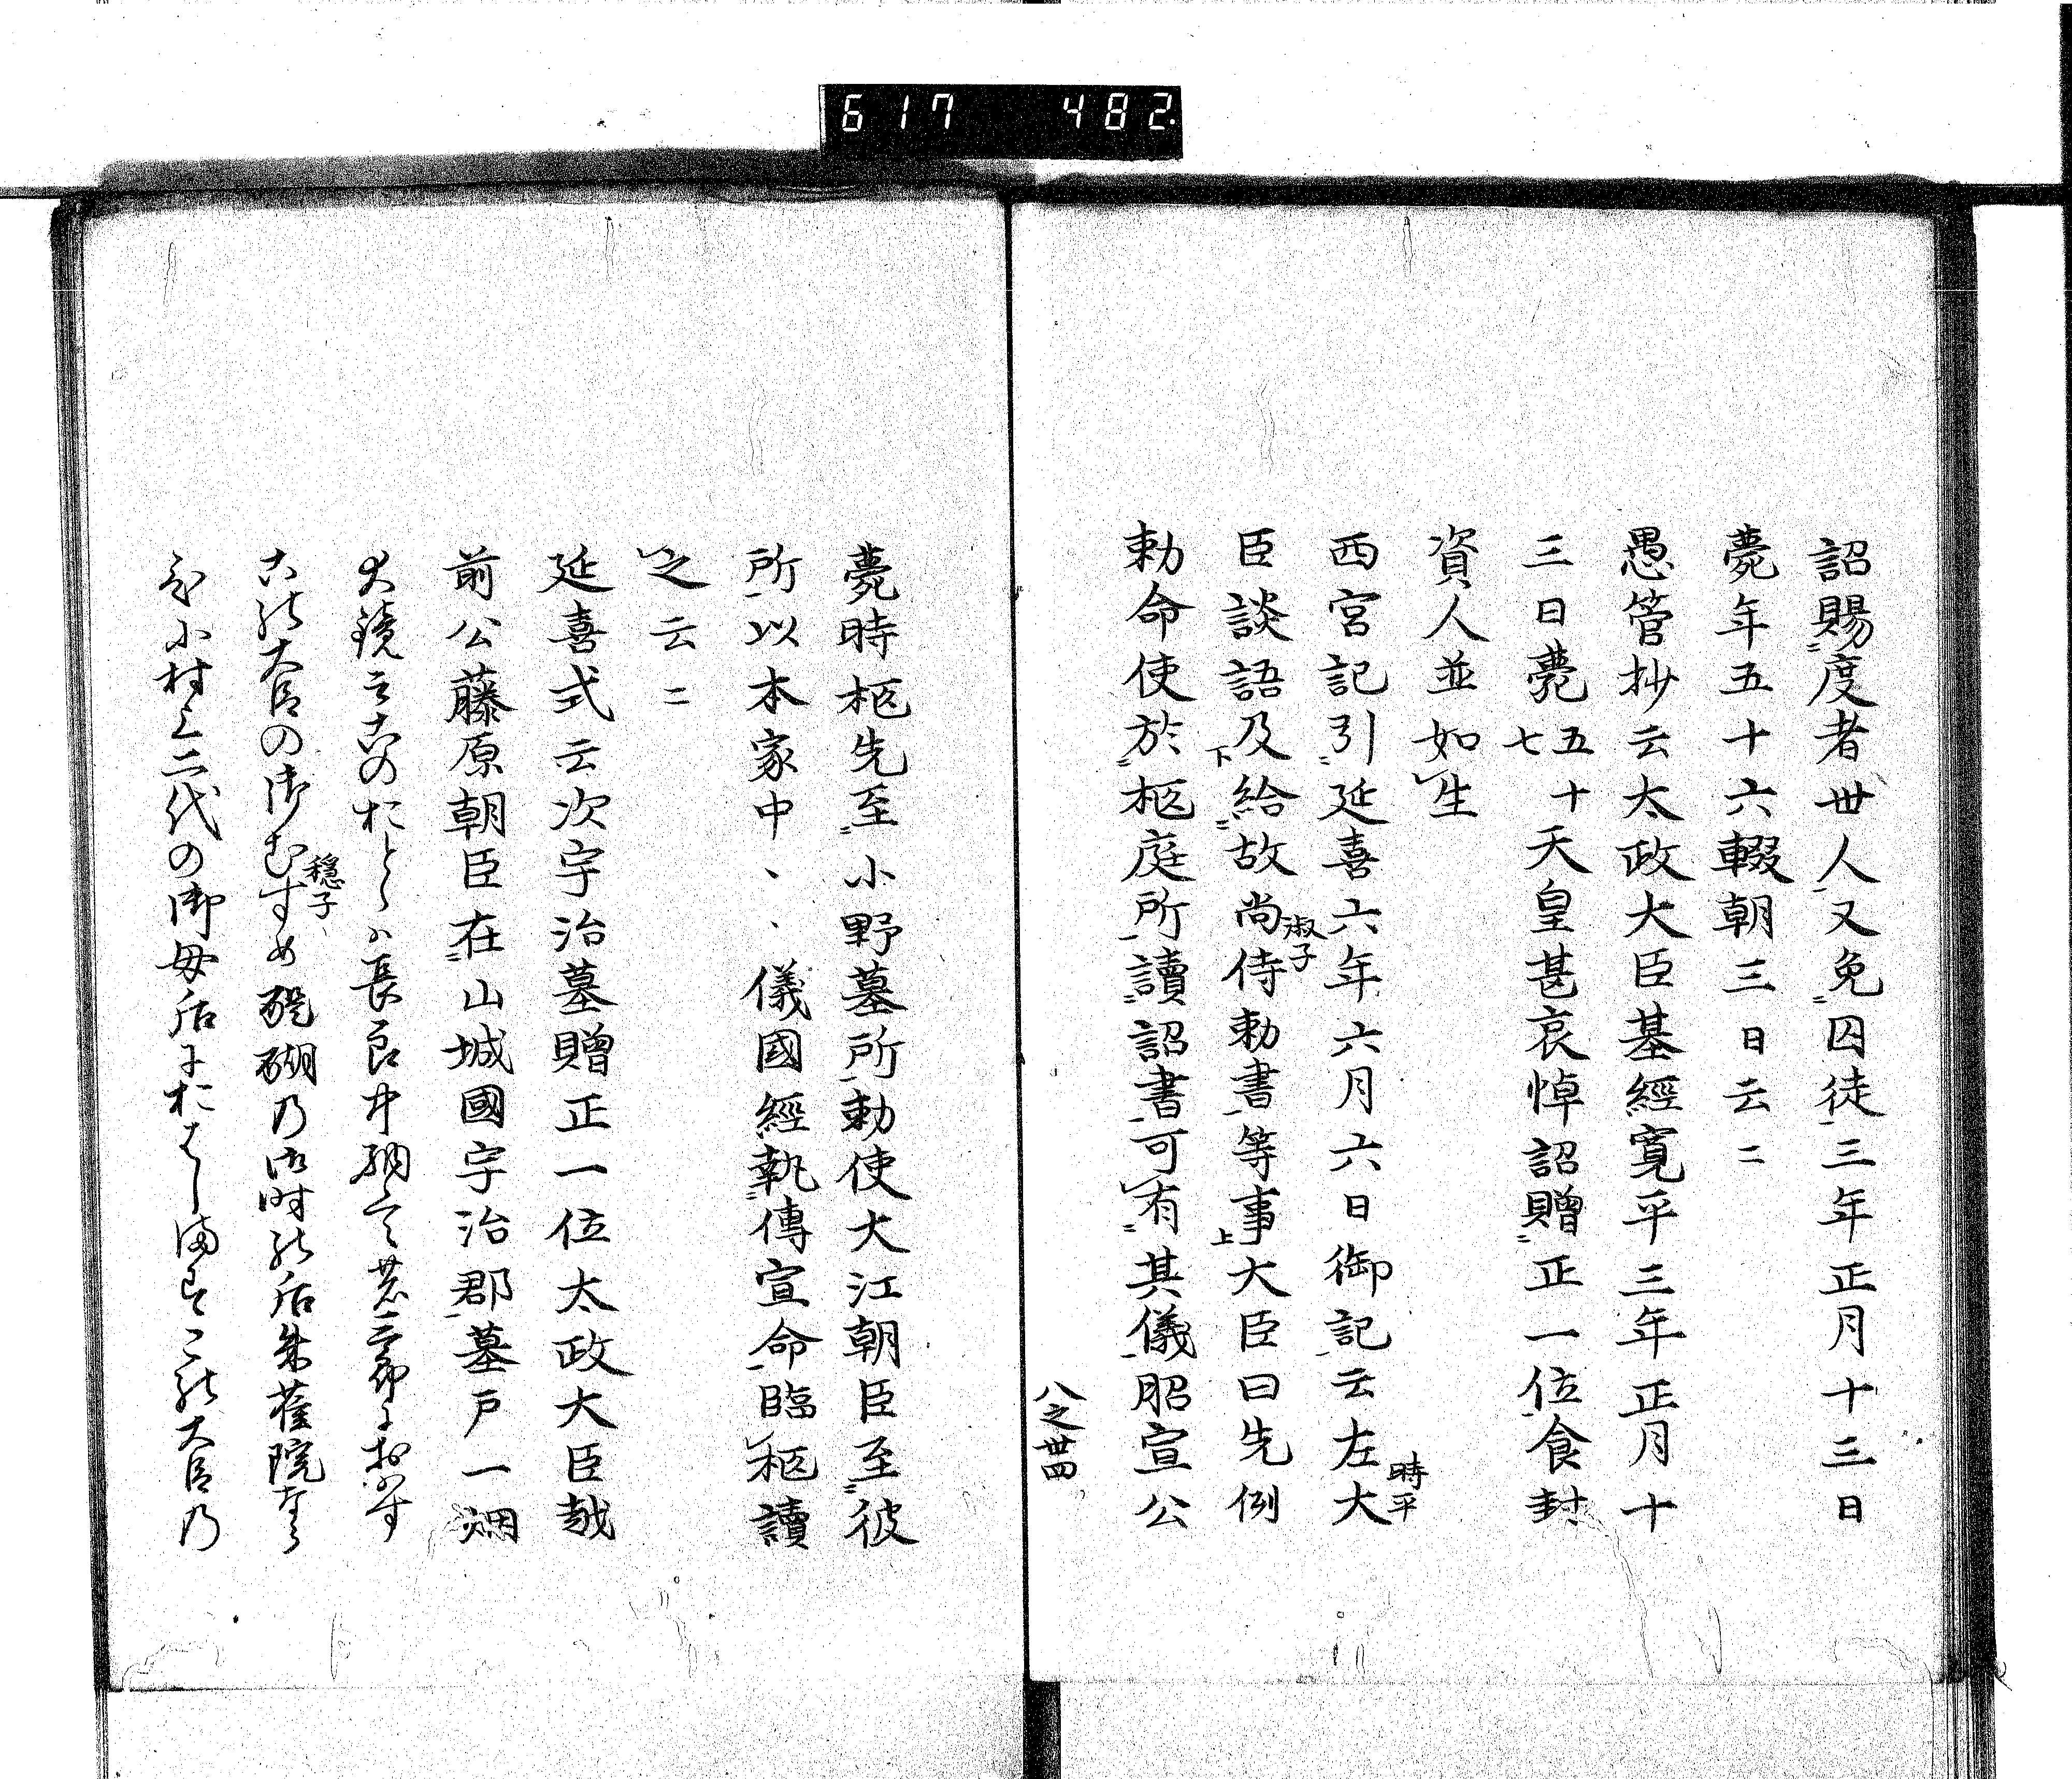 617 482
詔賜度者卅人又免囚徒三年正月十三日
薨年五十六輟朝三日云〻
愚管抄云太政大臣基經寛平三年正月十
三日薨五十七天皇甚哀悼詔贈正一位食封
資人並如生
西宮記引延喜六年六月六日御記云左大
時平
臣談語及給故尚侍勅書等事大臣曰先例
淑子
勅命使於柩庭所讀詔書可有其儀昭宣公
八之卅四
薨時柩先至小野墓所勅使大江朝臣至彼
所以本家中、、儀國經執傳宣命臨柩讀
之云〻
延喜式云次宇治墓贈正一位太政大臣越
前公藤原朝臣在山城國宇治郡墓戸一烟
大鏡云このおとゝハ長良中納言の三郎におはす
この大臣の御むすめ醍醐乃御時の后朱雀院なら
穏子
ひに村上二代の御母后におはします此大臣乃